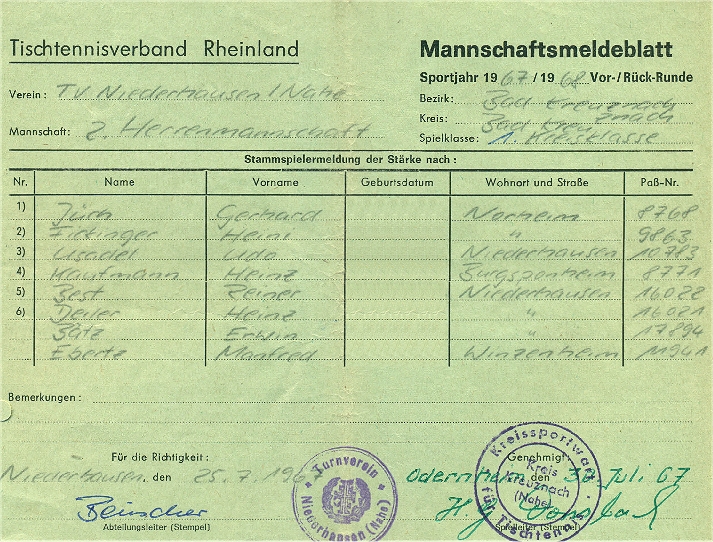 Tischtennisverband Rheinland
Mannschaftsmeldeblatt
Sportjahr 1967/1968 Vor-/Rück-Runde
Verein: TV Niederhausen/Nahe
Bezirk: Bad Kreuznach
Kreis: Bad Kreuznach
Mannschaft: 2. Herrenmannschaft
Spielklasse: 1. Kreisklasse
Stammspielermeldung der Stärke nach:
Nr. Name Vorname Geburtsdatum Wohnort und Straße Paß-Nr.
1) Gerhard Norheim 8768
2) Heini " 9863
3) Usadel Udo Niederhausen 10783
4) Kaufmann Heinz Burgsponheim 8771
5) Best Reiner Niederhausen 16022
6) Deiler Heinz " 16021
Bätz Erwin " 17894
Ebertz Manfred Winzenheim 11941
Bemerkungen:
Für die Richtigkeit: Genehmigt:
Niederhausen, den 25.7.196 Odernheim den 30. Juli 67
Beuscher H.
Abteilungsleiter (Stempel) Spielleiter (Stempel)
Turnverein Niederhausen (Nahe)
Kreissportwart für Tischtennis
Kreis
Kreuznach
(Nahe)